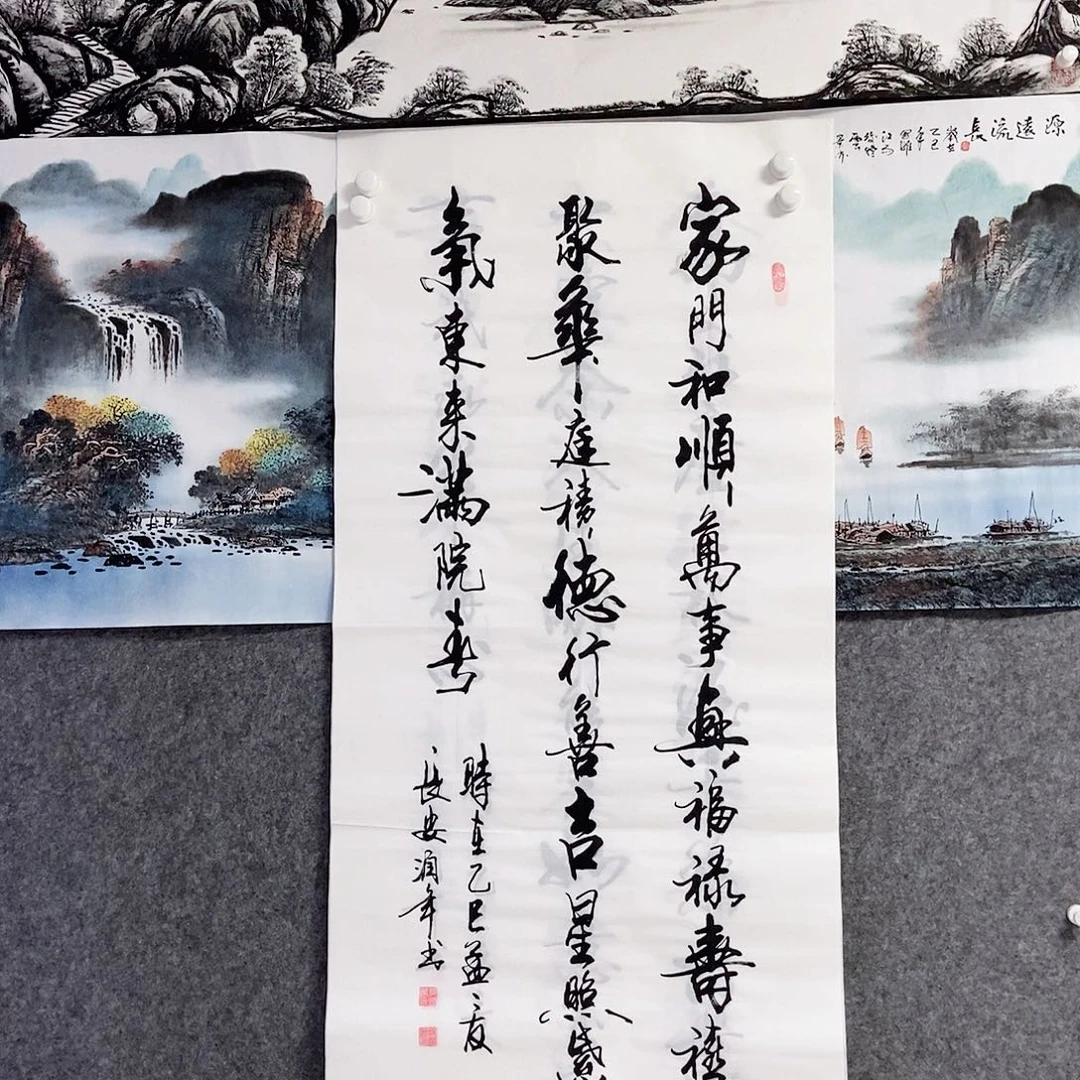 家門和順萬事興福祿壽禧
聚華庭積德行善吉星照紫
氣東來滿院春
時在乙巳孟夏
長安潤年书
源遠流長
歲在
乙巳
年